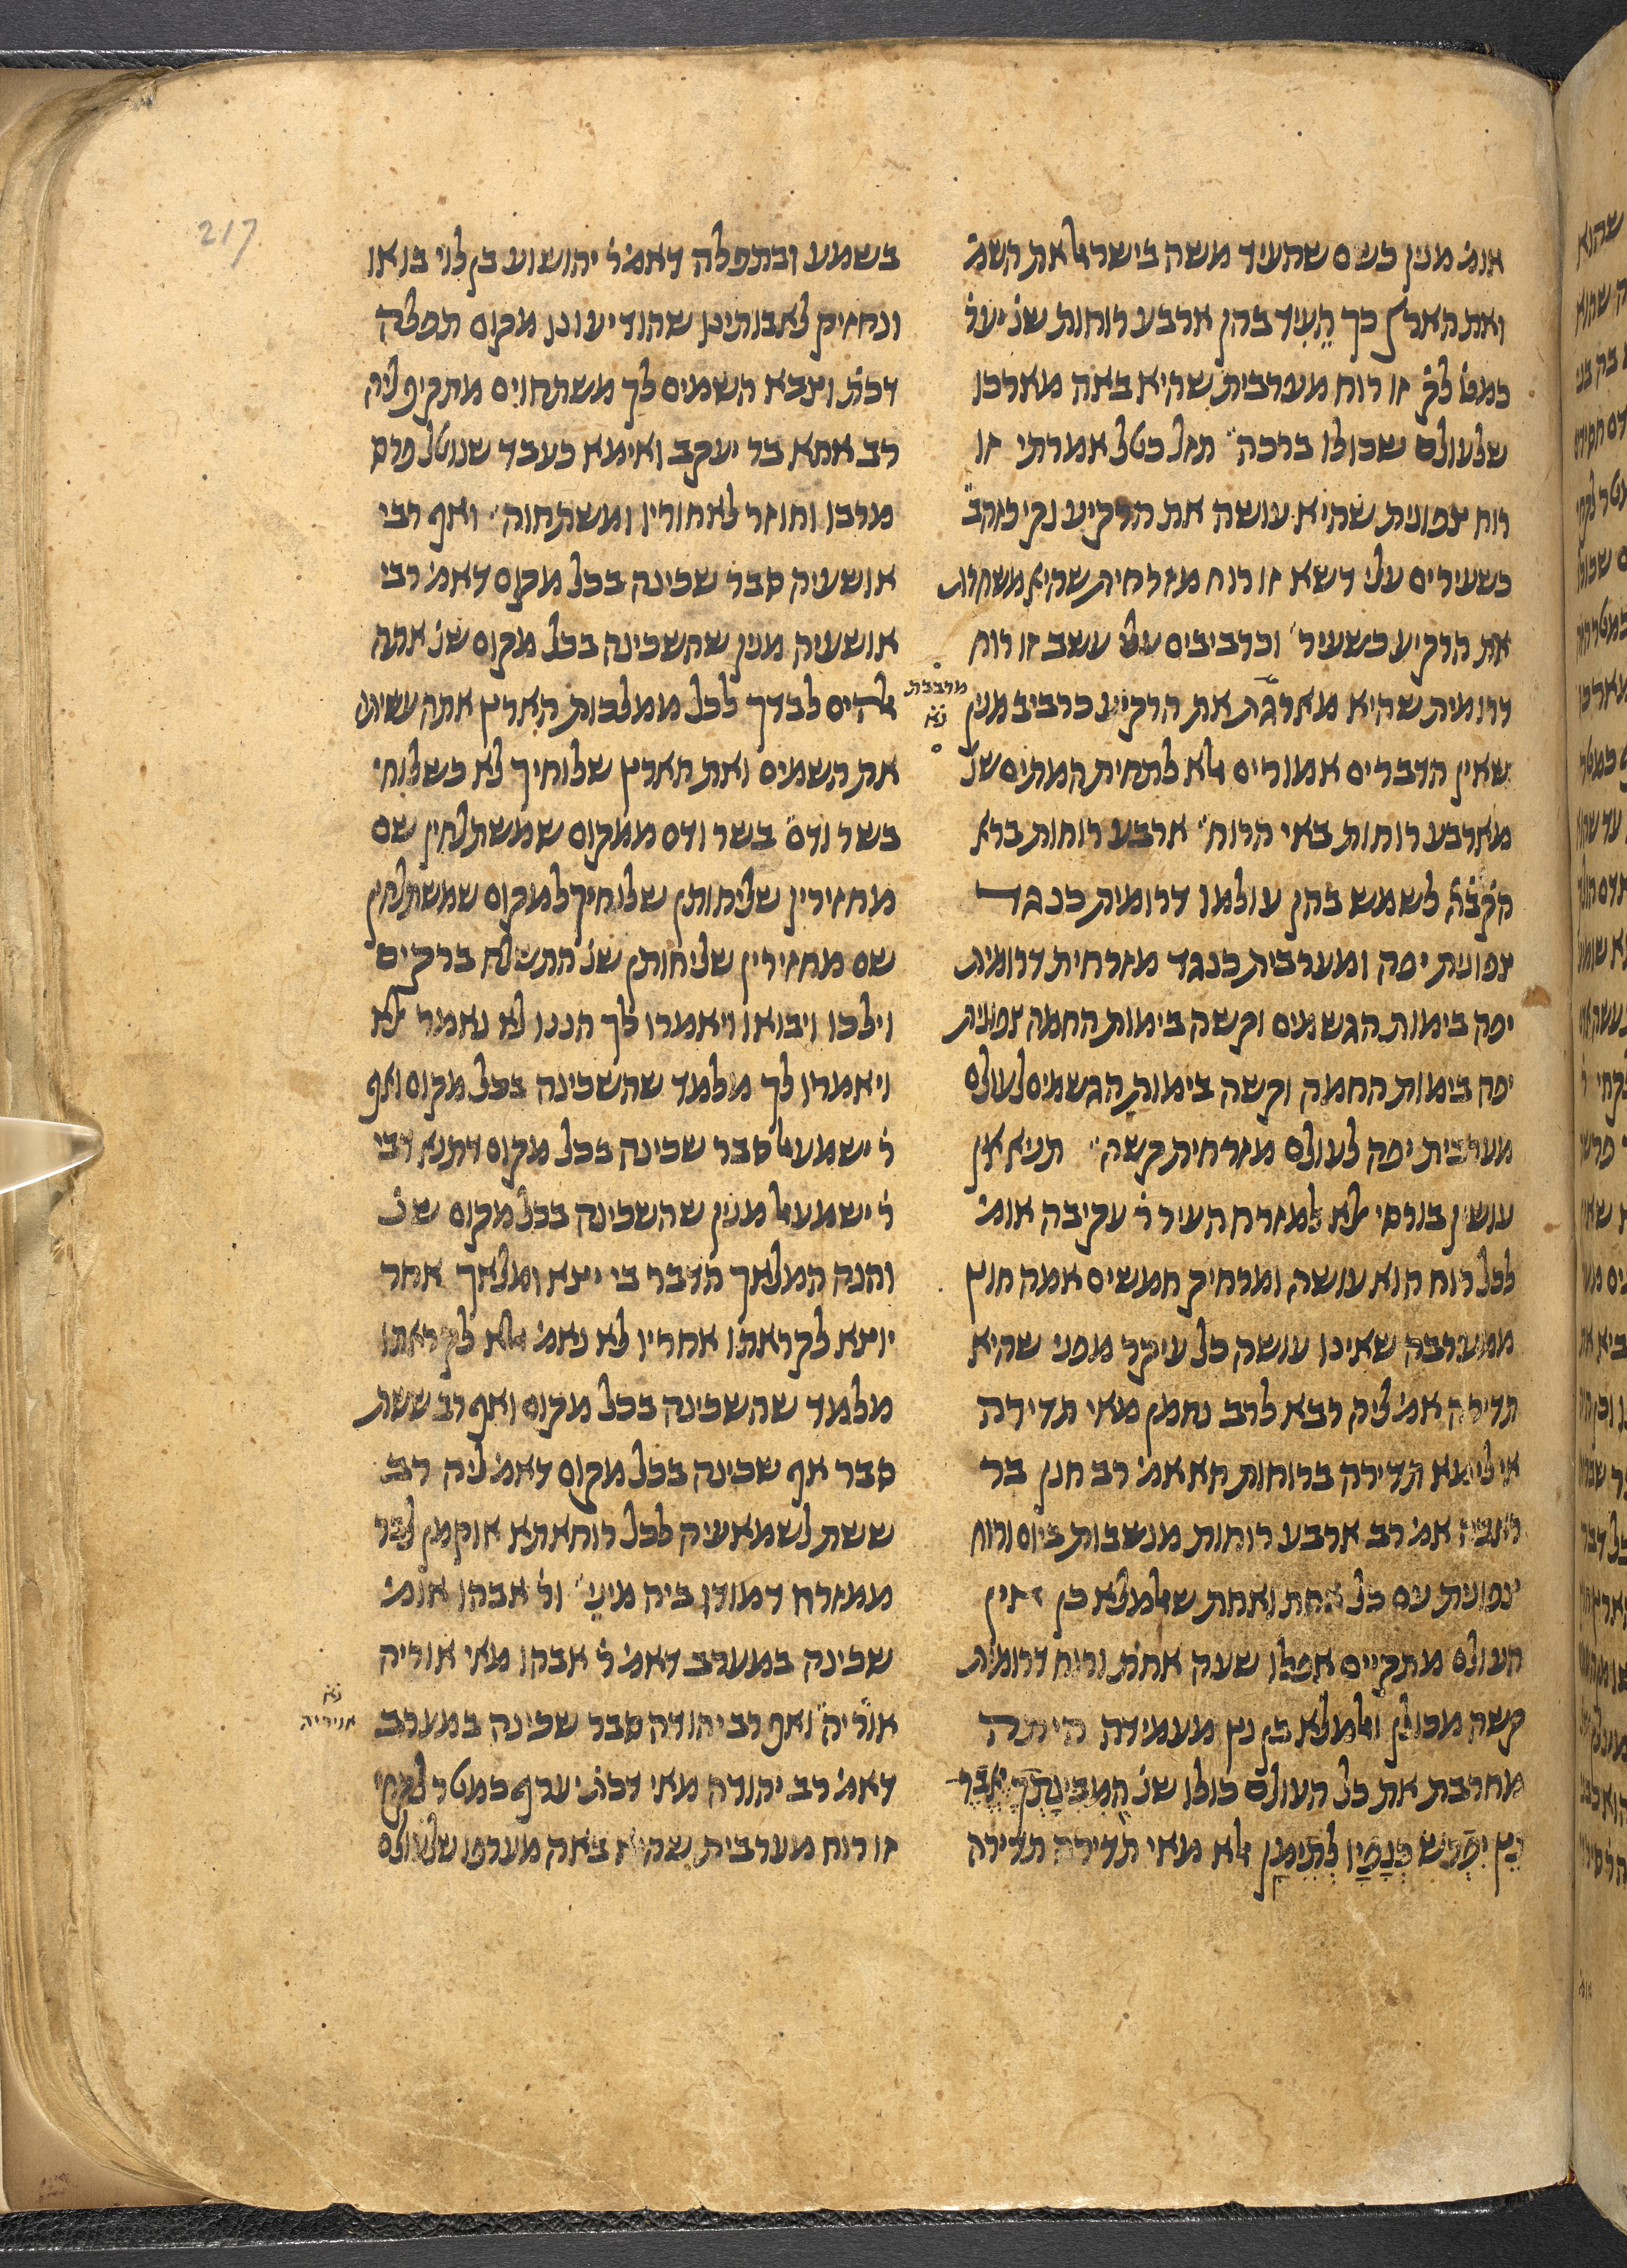 אומ׳ מנין כשם שהעיד משה בישראל את השמ׳
ואת הארץ כך העיד בהן ארבע רוחות שנ׳ יערף
כמט׳ לק׳ זו רוח מערבית שהיא באה מארכו
שלעולם שכולו ברכה׃ תזל כטל אמרתי זו
רוח צפונית שהיא עושה את הרקיע נקי כזהב׃
כשעירים עלי דשא זו רוח מזרחית שהיא משחרת
את הרקיע כשעיר׳ וכרביבים עלי עשב זו רוח
דרומית שהיא מארגת את הרקיע כרביב מנין
מרבבת
נ׳א
שאין הדברים אמורים אלא לתחית המתים שנ׳
מארבע רוחות באי הרוח׃ ארבע רוחות ברא
הק׳ב׳ה׳ לשמש בהן עולמו דרומית כנגד
צפונית יפה ומערבית כנגד מזרחית דרומית
יפה בימות הגשמים וקשה בימות החמה צפונית
יפה בימות החמה וקשה בימות הגשמים לעולם
מערבית יפה לעולם מזרחית קשה׃ תניא אין
עושין בורסי אלא למזרח העיר ר׳ עקיבה אומ׳
לכל רוח הוא עושה ומרחיק חמשים אמה חוץ
ממערבה שאינו עושה כל עיקר מפני שהיא
תדירה אמ׳ ליה רבא לרב נחמן מאי תדירה
אילימא תדירה ברוחות הא אמ׳ רב חנן בר
אמ׳ רב ארבע רוחות מנשבות ביום ורוח
צפונית עם כל אחת ואחת שאלמלא כן אין
העולם מתקיים אפילו שעה אחת ורוח דרומית
קשה מכולן ואלמלא בן נץ מעמידה היתה
מחרבת את כל העולם כולו שנ׳ המבינתך יאבר
נץ יפרש כנפיו לתימן אלא מאי תדירה תדירה
בשמע ובתפלה דאמ׳ ר׳ יהושוע בן לוי בואו
ונחזיק לאבותינו שהודיעונו מקום תפלה
דכת׳ וצבא השמים לך משתחוים מתקיף ליה
רב אחא בר יעקב ואימא כעבד שנוטל פרס
מרבו וחוזר לאחוריו ומשתחוה׃ ואף רבי
אושעיה סבר שכינה בכל מקום דאמ׳ רבי
אושעיה מנין שהשכינה בכל מקום שנ׳ אתה
אלהים לבדך לכל ממלכות הארץ אתה עשיתה
את השמים ואת הארץ שלוחיך לא כשלוחי
בשר ודם׃ בשר ודם ממקום שמשתלחין שם
מחזירין שליחותן שלוחיך למקום שמשתלחין
שם מחזירין שליחותן שנ׳ התשלח ברקים
וילכו ויבואו ויאמרו לך הננו לא נאמר אלא
ויאמרו לך מלמד שהשכינה בכל מקום ואף
ר׳ ישמעאל סבר שכינה בכל מקום דתנא דבי
ר׳ ישמעאל מנין שהשכינה בכל מקום שנ׳
והנה המלאך הדבר בי יצא ומלאך אחר
יוצא לקראתו אחריו לא נאמ׳ אלא לקראתו
מלמד שהשכינה בכל מקום ואף רב ששת
סבר אף שכינה בכל מקום דאמ׳ ליה רב
ששת לשמאעיה לכל רוחאתא אוקמן לבר
ממזרח דמודו ביה מיני׃ ור׳ אבהו אומ׳
שכינה במערב דאמ׳ ר׳ אבהו מאי אוריה
אוריה ואף רב יהודה סבר שכינה במערב
נ׳א
אויריה
דאמ׳ רב יהודה מאי דכת׳ יערף כמטר לקחי
זו רוח מערבית שהיא באה מערפו שלעולם
217